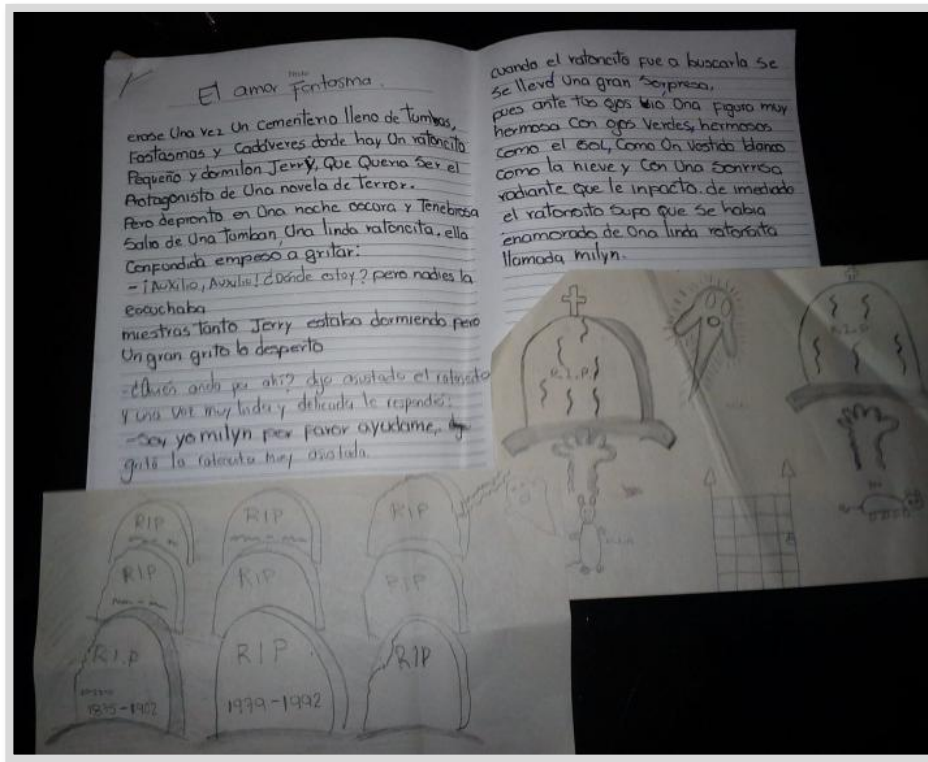 El amor Fantasma.
erase Una vez Un cementerio lleno de Tumbas,
Fastasmas y Cadáveres donde hay Un ratoncito
Pequeño y dormilon Jerry, Que Queria Ser el
Protagonista de Una novela de Terror.
Pero depronto en Una noche oscura y Tenebrosa
Salio de Una Tumban, Una linda ratoncita, ella
Confundida empeso a gritar:
- ¡Auxilio, Auxilio! ¿Dónde estoy? pero nadies la
escuchaba
miestras tanto Jerry estaba dormiendo pero
Un gran grito lo desperto
-¿Quién anda por ahi? dijo asustado el ratoncito
y una voz muy linda y delicada le respondió:
-Soy yo milyn por favor ayudame,
gritó la ratoncita muy asustada.
cuando el ratoncito fue a buscarla se
se llevó Una gran Sorpresa,
pues ante tus ojos vio Una figura muy
hermosa Con ojos Verdes, hermosos
como el sol, Como Un Vestido blanco
como la nieve y Con Una Sonrrisa
radiante que le inpacto. de imediado
el ratonsito Supo que se habia
enamorado de Una linda ratonsita
llamada milyn.
R.I.P
R.I.P
RIP
RIP
RIP
RIP
RIP
RIP
R.I.P
1895-1902
RIP
1979-1992
RIP